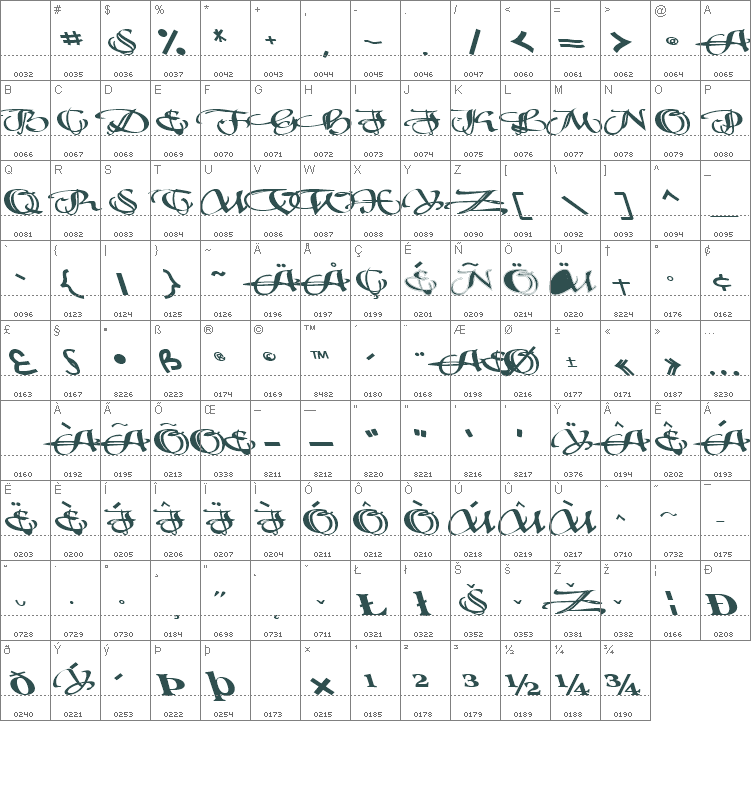 # $ % * + , - . / < = > @ A
0032 0035 0036 0037 0042 0043 0044 0045 0046 0047 0060 0061 0062 0064 0065
B C D E F G H I J K L M N O P
0066 0067 0068 0069 0070 0071 0072 0073 0074 0075 0076 0077 0078 0079 0080
Q R S T U V W X Y Z [ \ ] ^ _
0081 0082 0083 0084 0085 0086 0087 0088 0089 0090 0091 0092 0093 0094 0095
` { | } ~ Ä Å Ç É Ñ Ö Ü † ° ¢
0096 0123 0124 0125 0126 0196 0197 0199 0201 0209 0214 0220 8224 0176 0162
£ § • ß ® © ™ ´ ¨ Æ Ø ± « » …
0163 0167 8226 0223 0174 0169 8482 0180 0168 0198 0216 0177 0171 0187 8230
À Ã Õ Œ – — “ ” ‘ ’ Ÿ Â Ê Á
0160 0192 0195 0213 0338 8211 8212 8220 8221 8216 8217 0376 0194 0202 0193
Ë È Í Î Ï Ì Ó Ô Ò Ú Û Ù ˆ ˜ ¯
0203 0200 0205 0206 0207 0204 0211 0212 0210 0218 0219 0217 0710 0732 0175
˘ ˙ ˚ ¸ " ˛ ˇ Ł ł Š š Ž ž ¦ Ð
0728 0729 0730 0184 0698 0731 0711 0321 0322 0352 0353 0381 0382 0166 0208
ð Ý ý Þ þ × ¹ ² ³ ½ ¼ ¾
0240 0221 0253 0222 0254 0173 0215 0185 0178 0179 0189 0188 0190